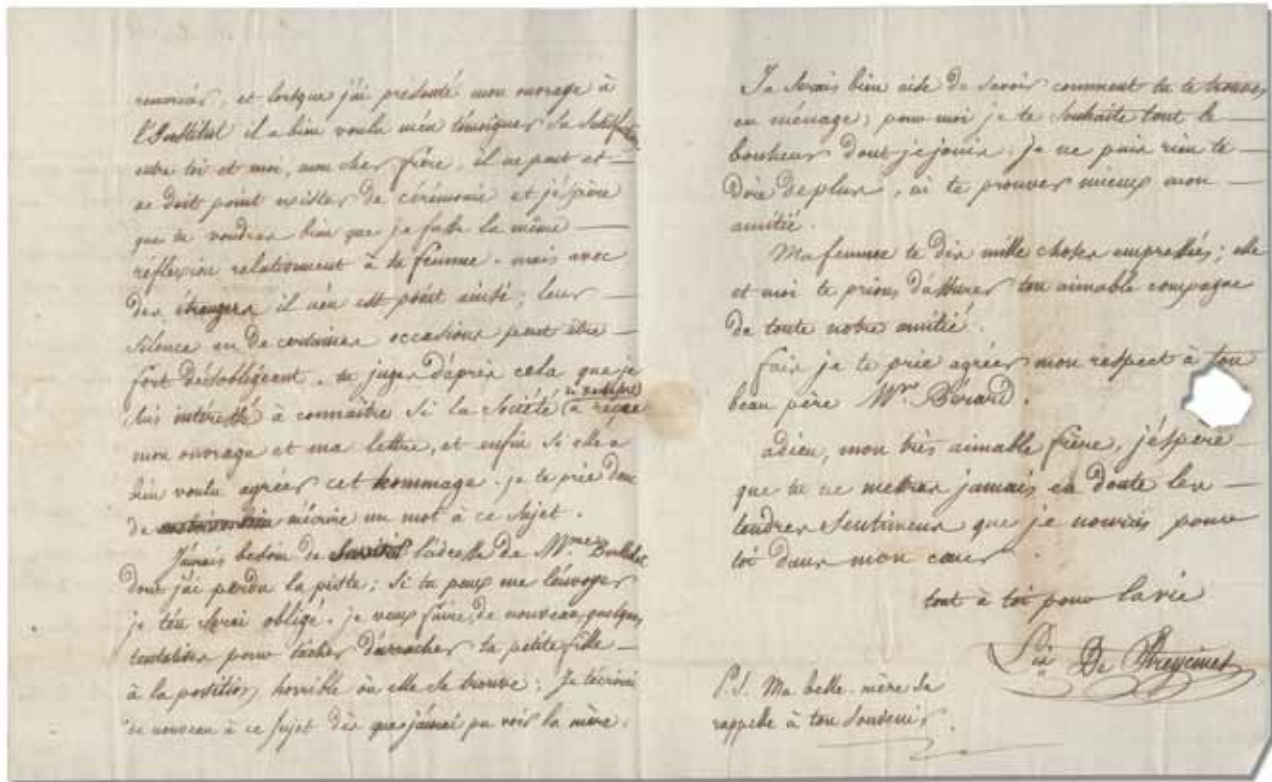 remercier, et lorsque j'ai présenté mon ouvrage à
l'Institut il a bien voulu m'en témoigner sa satisfon.
entre toi et moi, mon cher frère, il ne peut et
ne doit point exister de cérémonie et j'éspère
que tu voudras bien que je fasse la même
réflexion relativement à ta femme. mais avec
des étrangers il n'en est point ainsi; leur
silence en de certaines occasions peut être
fort désobligeant. tu juges d'après cela que je
suis intéressé à connaître si la Société a reçue
mon ouvrage et ma lettre, et enfin si elle a
bien voulu agréer cet hommage. je te prie donc
de m'écrire un mot à ce sujet.
J'aurais besoin de l'adresse de Mme
dont j'ai perdu la piste; si tu peux me l'envoyer
je t'en serai obligé. je veux faire de nouveau quelques
tentatives pour tâcher d'arracher ta petite fille
à la position horrible où elle se trouve; Je t'écrirai
de nouveau à ce sujet dès que j'aurai pu voir la mère.
Je serais bien aise de savoir comment tu te trouves
en ménage; pour moi je te souhaite tout le
bonheur dont je jouis. je ne puis rien te
dire de plus, ni te prouver mieux mon
amitié.
Ma femme te dis mille choses empressées; elle
et moi te prions d'assurer ton aimable compagne
de toute notre amitié.
fais je te prie agréer mon respect à ton
beau père Mr. Bérard.
adieu, mon très aimable frère, j'éspère
que tu ne mettras jamais en doute les
tendres sentimens que je nourris pour
toi dans mon cœur.
tout à toi pour la vie
Ls De Freycinet
P.S. Ma belle-mère se
rappelle à ton souvenir.